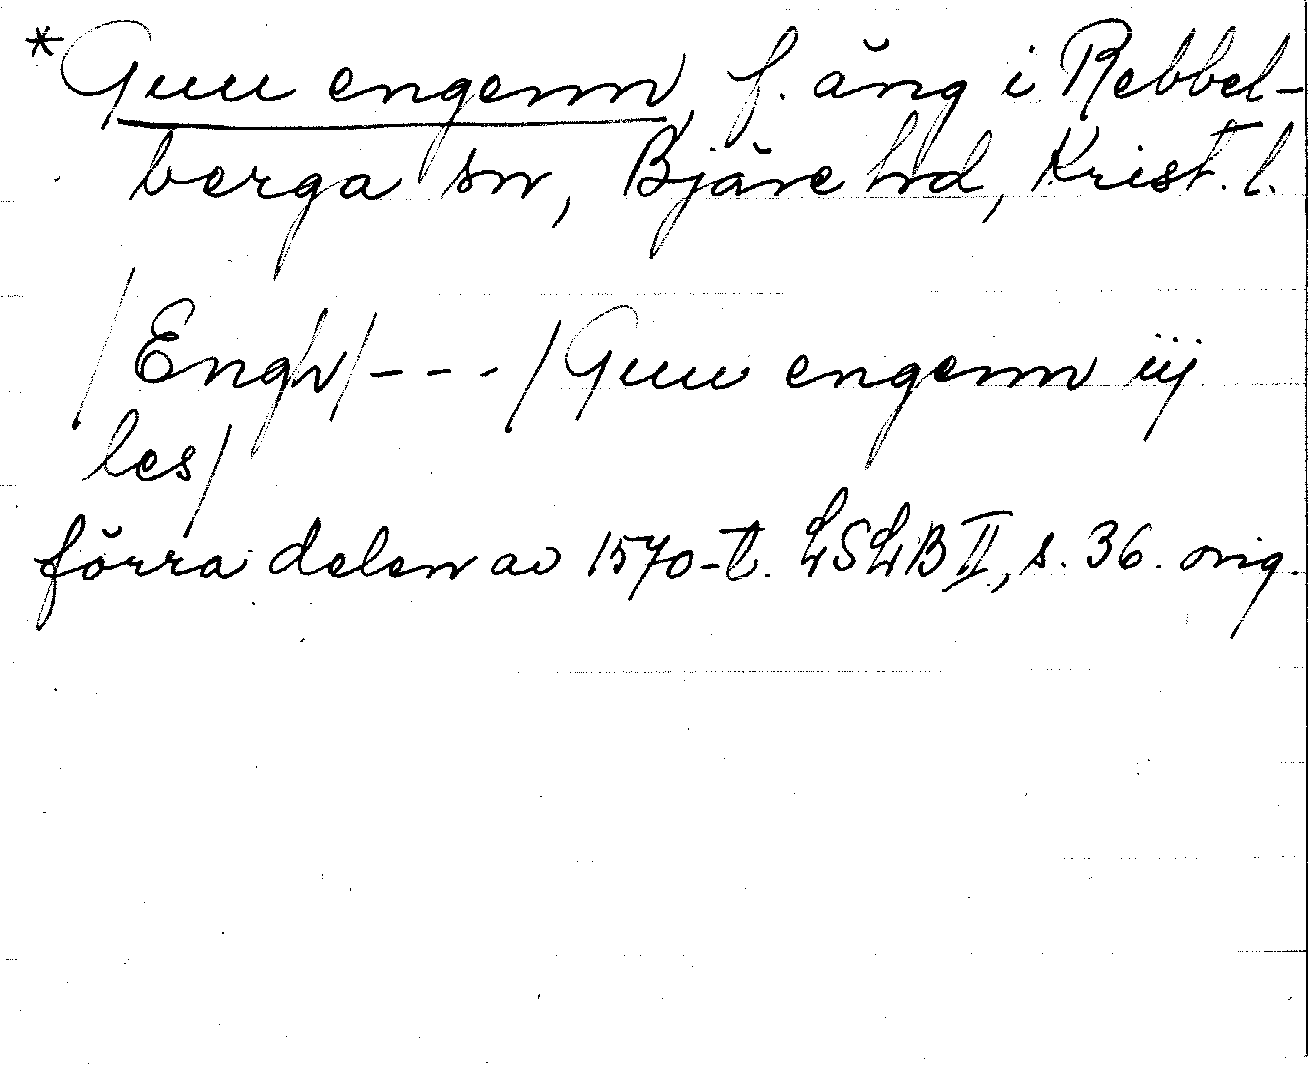 *Guu engenn, f. äng i Rebbel-
berga sn, Bjäre hd, Krist. l.
/Engh/---/Guu engenn iij
les/
förra delen av 1570-t. LSLB II, s. 36. orig.